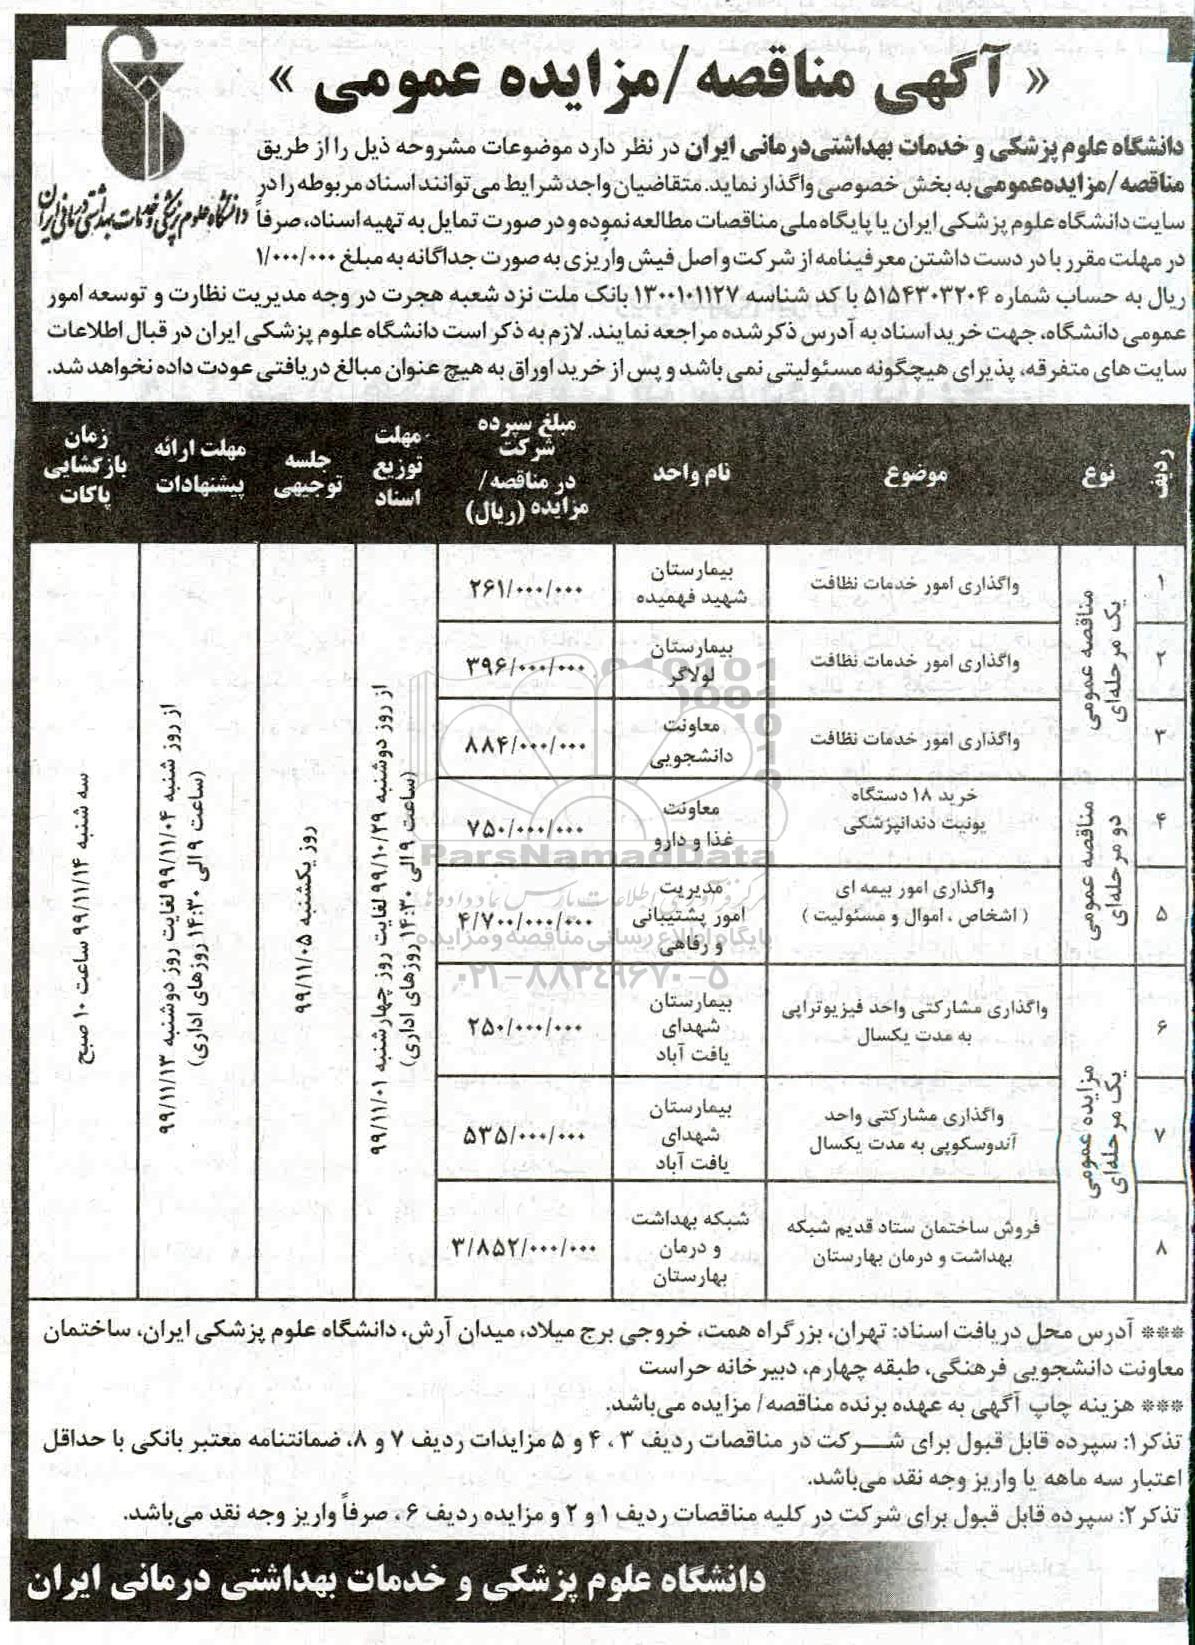 « آگهی مناقصه/مزایده عمومی »
دانشگاه علوم پزشکی و خدمات بهداشتی درمانی ایران
دانشگاه علوم پزشکی و خدمات بهداشتی‌درمانی ایران در نظر دارد موضوعات مشروحه ذیل را از طریق
مناقصه/مزایده‌عمومی به بخش خصوصی واگذار نماید. متقاضیان واجد شرایط می‌توانند اسناد مربوطه را در
سایت دانشگاه علوم پزشکی ایران یا پایگاه ملی مناقصات مطالعه نموده و در صورت تمایل به تهیه اسناد، صرفاً
در مهلت مقرر با در دست داشتن معرفینامه از شرکت و اصل فیش واریزی به صورت جداگانه به مبلغ ۱/۰۰۰/۰۰۰
ریال به حساب شماره ۵۱۵۴۳۰۳۲۰۴ با کد شناسه ۱۳۰۰۱۰۱۱۲۷ بانک ملت نزد شعبه هجرت در وجه مدیریت نظارت و توسعه امور
عمومی دانشگاه، جهت خرید اسناد به آدرس ذکر شده مراجعه نمایند. لازم به ذکر است دانشگاه علوم پزشکی ایران در قبال اطلاعات
سایت های متفرقه، پذیرای هیچگونه مسئولیتی نمی باشد و پس از خرید اوراق به هیچ عنوان مبالغ دریافتی عودت داده نخواهد شد.
ردیف
نوع
موضوع
نام واحد
مبلغ سپرده
شرکت
در مناقصه/
مزایده (ریال)
مهلت
توزیع
اسناد
جلسه
توجیهی
مهلت ارائه
پیشنهادات
زمان
بازگشایی
پاکات
۱
مناقصه عمومی
یک مرحله‌ای
واگذاری امور خدمات نظافت
بیمارستان
شهید فهمیده
۲۶۱/۰۰۰/۰۰۰
از روز دوشنبه ۹۹/۱۰/۲۹ لغایت روز چهارشنبه ۹۹/۱۱/۰۱
(ساعت ۹ الی ۱۴:۳۰ روزهای اداری)
روز یکشنبه ۹۹/۱۱/۰۵
از روز شنبه ۹۹/۱۱/۰۴ لغایت روز دوشنبه ۹۹/۱۱/۱۳
(ساعت ۹ الی ۱۴:۳۰ روزهای اداری)
سه شنبه ۹۹/۱۱/۱۴ ساعت ۱۰ صبح
۲
واگذاری امور خدمات نظافت
بیمارستان
لولاگر
۳۹۶/۰۰۰/۰۰۰
۳
واگذاری امور خدمات نظافت
معاونت
دانشجویی
۸۸۴/۰۰۰/۰۰۰
۴
مناقصه عمومی
دو مرحله‌ای
خرید ۱۸ دستگاه
یونیت دندانپزشکی
معاونت
غذا و دارو
۷۵۰/۰۰۰/۰۰۰
۵
واگذاری امور بیمه ای
( اشخاص ، اموال و مسئولیت )
مدیریت
امور پشتیبانی
و رفاهی
۴/۷۰۰/۰۰۰/۰۰۰
۶
مزایده عمومی
یک مرحله‌ای
واگذاری مشارکتی واحد فیزیوتراپی
به مدت یکسال
بیمارستان
شهدای
یافت آباد
۲۵۰/۰۰۰/۰۰۰
۷
واگذاری مشارکتی واحد
آندوسکوپی به مدت یکسال
بیمارستان
شهدای
یافت آباد
۵۳۵/۰۰۰/۰۰۰
۸
فروش ساختمان ستاد قدیم شبکه
بهداشت و درمان بهارستان
شبکه بهداشت
و درمان
بهارستان
۳/۸۵۲/۰۰۰/۰۰۰
ParsNamadData
پایگاه اطلاع رسانی مناقصه و مزایده
۰۲۱-۸۸۳۴۹۶۷۰-۵
*** آدرس محل دریافت اسناد: تهران، بزرگراه همت، خروجی برج میلاد، میدان آرش، دانشگاه علوم پزشکی ایران، ساختمان
معاونت دانشجویی فرهنگی، طبقه چهارم، دبیرخانه حراست
*** هزینه چاپ آگهی به عهده برنده مناقصه/ مزایده می‌باشد.
تذکر۱: سپرده قابل قبول برای شرکت در مناقصات ردیف ۳ ، ۴ و ۵ مزایدات ردیف ۷ و ۸، ضمانتنامه معتبر بانکی با حداقل
اعتبار سه ماهه یا واریز وجه نقد می‌باشد.
تذکر۲: سپرده قابل قبول برای شرکت در کلیه مناقصات ردیف ۱ و ۲ و مزایده ردیف ۶ ، صرفاً واریز وجه نقد می‌باشد.
دانشگاه علوم پزشکی و خدمات بهداشتی درمانی ایران